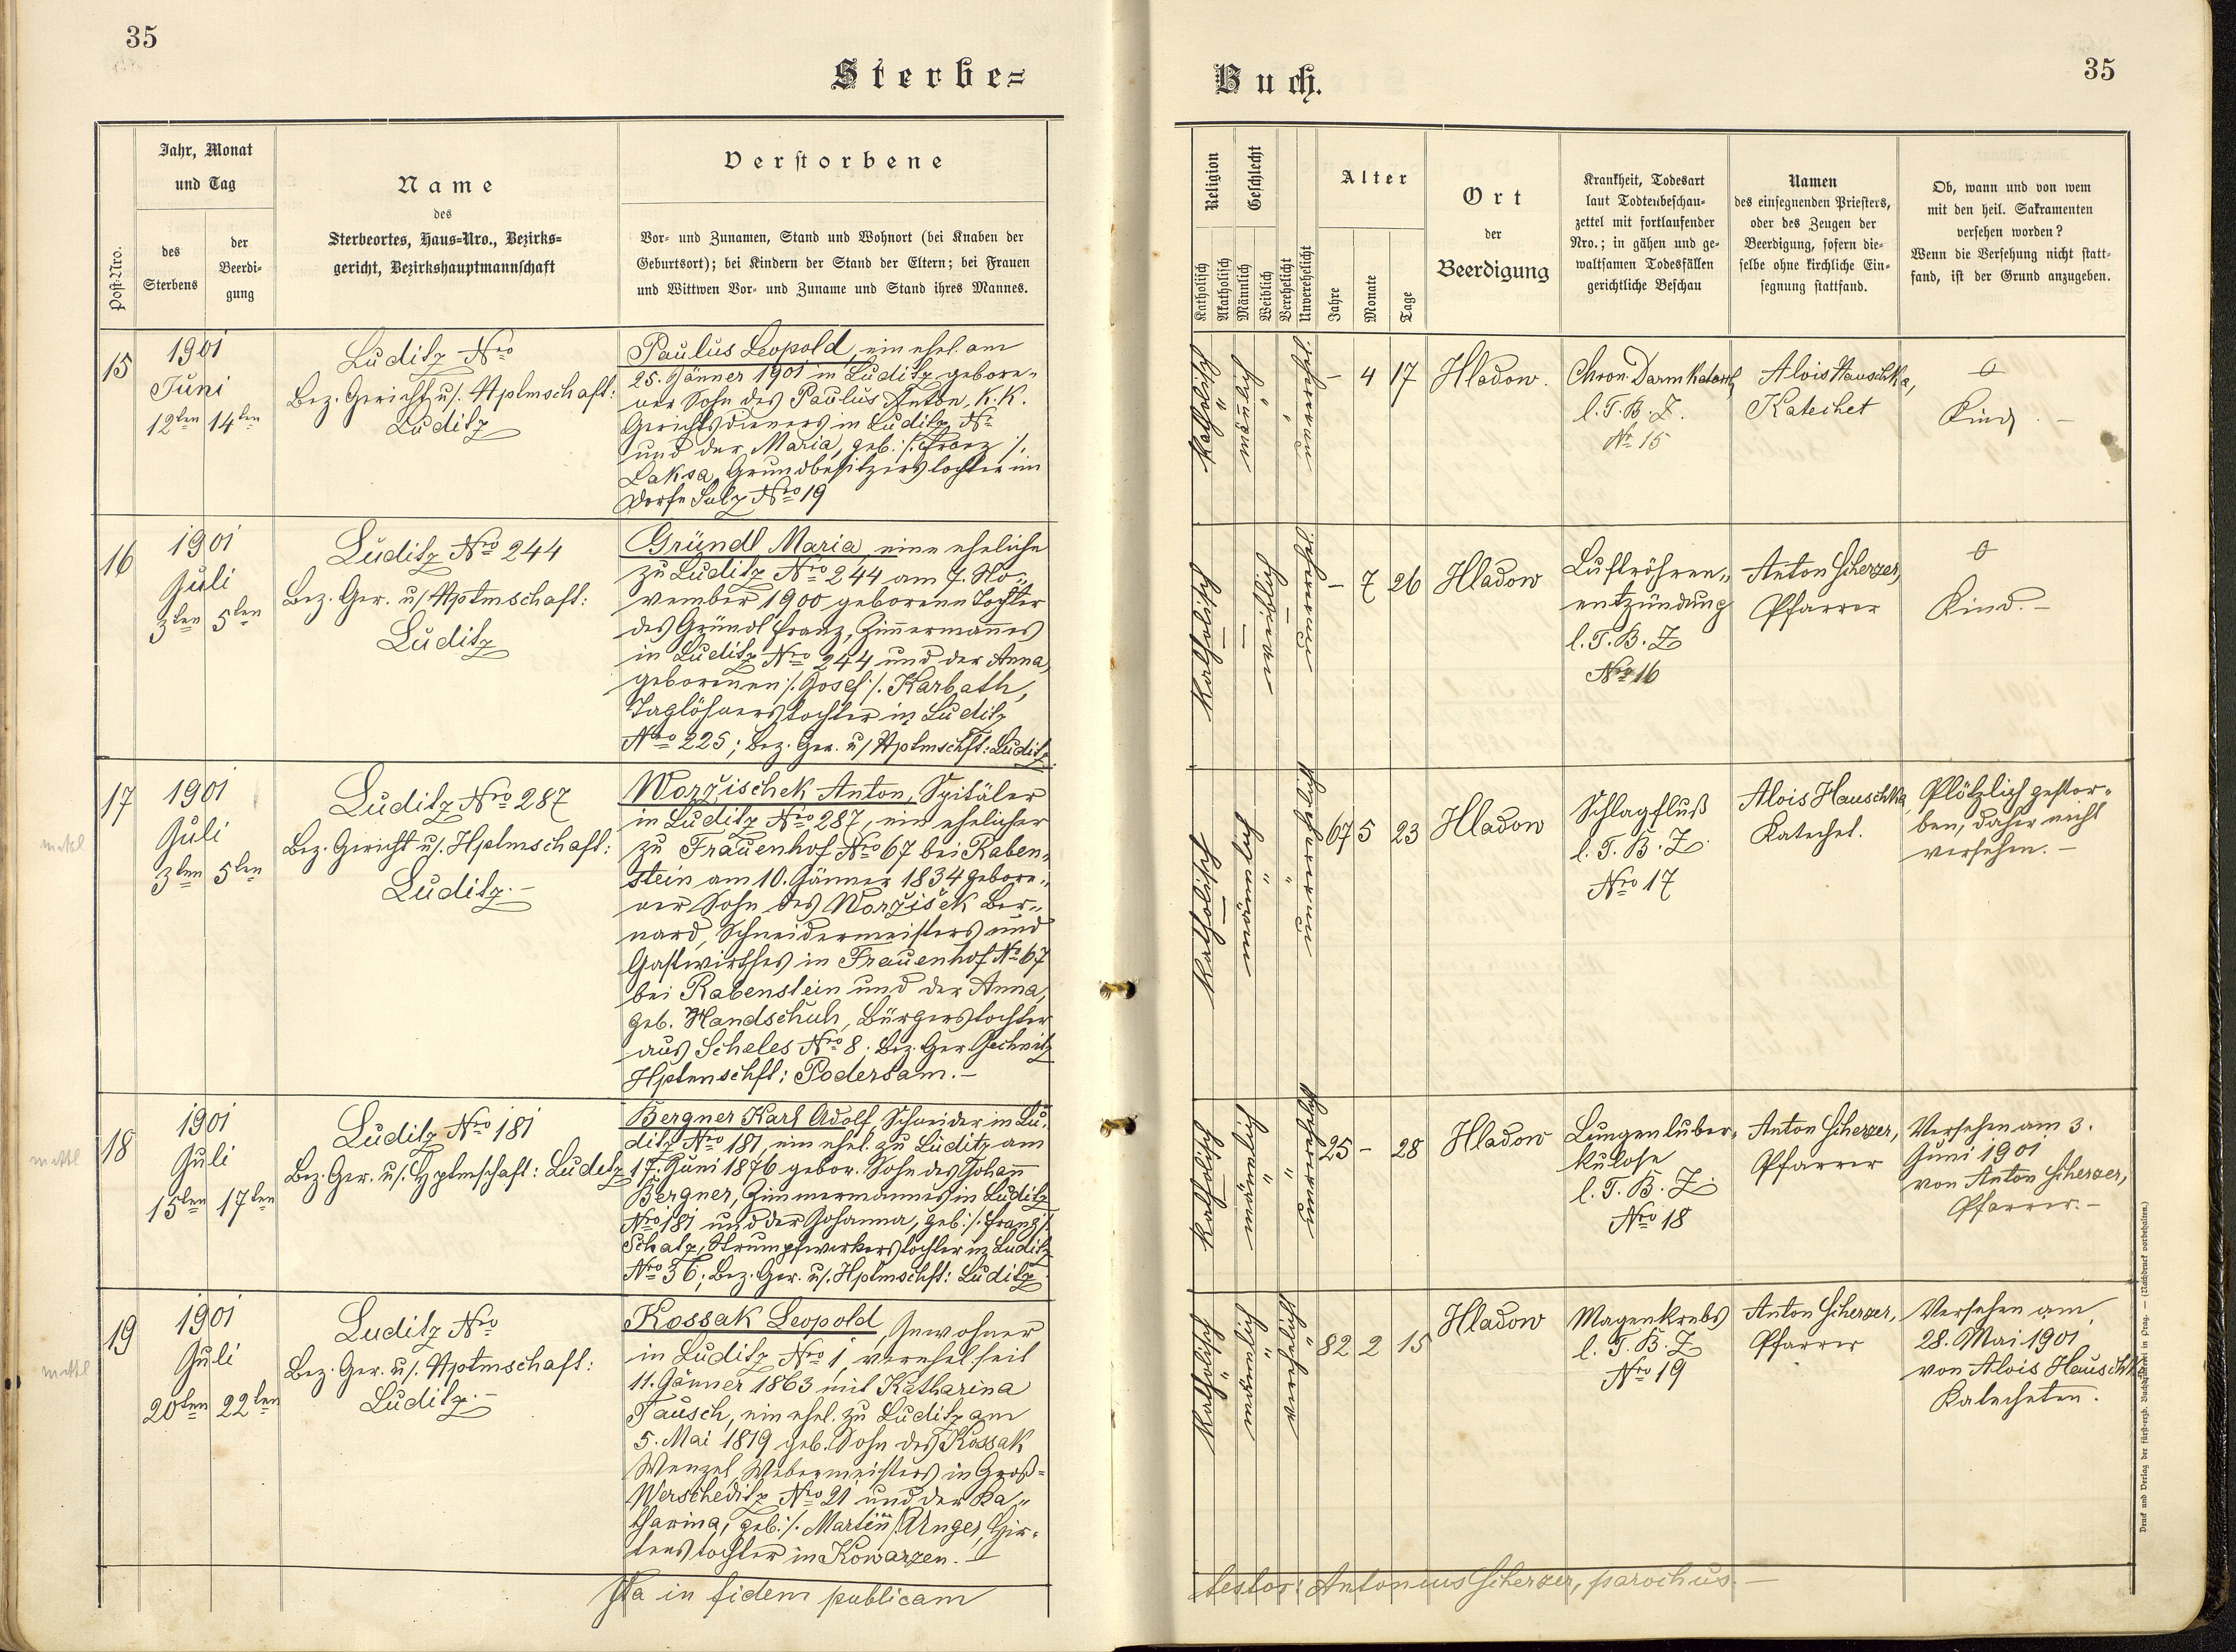 35
Sterbe-
Post-Nro.
Jahr, Monat
und Tag
des
Sterbens
der
Beerdi-
gung
Name
des
Sterbeortes, Haus-Nro., Bezirks-
gericht, Bezirkshauptmannschaft
Verstorbene
Vor- und Zunamen, Stand und Wohnort (bei Knaben der
Geburtsort); bei Kindern der Stand der Eltern; bei Frauen
und Wittwen Vor- und Zuname und Stand ihres Mannes.
15
1901
Juni
12ten 14ten
Luditz Nro
Bez. Gericht u/. Hptmschaft:
Luditz
Paulus Leopold, ein ehel. am
25. Jänner 1901 in Luditz gebore-
ner Sohn des Paulus Anton, K. K.
Gerichtsdieners in Luditz No
und der Maria, geb. /: Franz /:
Laksa, Grundbesitzerstochter im
Dorfe Salz Nro 19
16
1901
Juli
3ten 5ten
Luditz Nro 244
Bez. Ger. u/ Hptmschaft:
Luditz
Gründl Maria, eine eheliche
zu Luditz Nro 244 am 7. No-
vember 1900 geborene Tochter
des Gründl Franz, Zimmermannes
in Luditz Nro 244 und der Anna,
geborenen /. Josef /. Karbath,
Taglöhnerstochter in Luditz
Nro 225; Bez. Ger. u/ Hptmschft: Luditz
17
1901
Juli
3ten 5ten
Luditz Nro 287
Bez. Gericht u/. Hptmschaft:
Luditz.-
Woržischek Anton, Spitäler
in Luditz Nro 287, ein ehelicher
zu Frauenhof Nro 67 bei Raben-
stein am 10. Jänner 1834 gebore-
ner Sohn des Woržišek Ber-
nard, Schneidermeisters und
Gastwirthes in Frauenhof No 67
bei Rabenstein und der Anna,
geb. Handschuh, Bürgerstochter
aus Scheles Nro 8. Bez. Ger. Jechnitz
Hptmschft: Podersam.-
18
1901
Juli
15ten 17ten
Luditz Nro 181
Bez. Ger. u/. Hptmschaft: Luditz
Bergner Karl Adolf, Schneider in Lu-
ditz Nro 181, ein ehel. zu Luditz am
17. Juni 1876 gebor. Sohn des Johann
Bergner, Zimmermannes in Luditz
Nro 181 und der Johanna, geb. /. Franz /.
Schatz, Strumpfwirkerstochter in Luditz
Nro 36; Bez. Ger. u/. Hptmschft: Luditz
19
1901
Juli
20ten 22ten
Luditz Nro
Bez. Ger. u/. Hptmschaft:
Luditz.-
Kossak Leopold, Inwohner
in Luditz Nro 1, verehel. seit
11. Jänner 1863 mit Katharina
Tausch, ein ehel. zu Luditz am
5. Mai 1819 geb. Sohn des Kossak
Wenzel, Webermeisters in Groß-
Werscheditz Nro 21 und der Ka-
tharina, geb. /. Martin /. Unger, Hir-
tenstochter in Kowarzen.
Ita in fidem publicam
Buch.
35
Religion
Katholisch
Akatholisch
Geschlecht
Männlich
Weiblich
Verehelicht
Unverehelicht
Alter
Jahre
Monate
Tage
Ort
der
Beerdigung
Krankheit, Todesart
laut Todtenbeschau-
zettel mit fortlaufender
Nro.; in gähen und ge-
waltsamen Todesfällen
gerichtliche Beschau
Namen
des einsegnenden Priesters,
oder des Zeugen der
Beerdigung, sofern die-
selbe ohne kirchliche Ein-
segnung stattfand.
Ob, wann und von wem
mit den heil. Sakramenten
versehen worden?
Wenn die Versehung nicht statt-
fand, ist der Grund anzugeben.
Katholisch
männlich
unverehel.
- 4 17
Hladow.
Chron. Darmkatarrh
l. T. B. Z.
No 15
Alois Hauschka,
Katechet
Kind.-
Katholisch
weiblich
unverehel.
- 7 26
Hladow
Luftröhren-
entzündung
l. T. B. Z
Nro 16
Anton Scherzer,
Pfarrer
Kind.-
Katholisch
männlich
unverehelicht
67 5 23
Hladow
Schlagfluß
l. T. B. Z.
Nro 17
Alois Hauschka
Katechet.
Plötzlich gestor-
ben, daher nicht
versehen.-
Katholisch
männlich
unverehelicht
25 - 28
Hladow
Lungentuber-
kulose
l. T. B. Z.
Nro 18
Anton Scherzer,
Pfarrer
Versehen am 3.
Juni 1901
von Anton Scherzer,
Pfarrer.-
Katholisch
männlich
verehelicht
82 2 15
Hladow
Magenkrebs
l. T. B. Z
Nro 19
Anton Scherzer,
Pfarrer
Versehen am
28. Mai 1901
von Alois Hauschka
Katecheten.
testor: Antonius Scherzer, parochus.-
Druck und Verlag der fürst-erzb. Buchdruckerei in Prag. — (Nachdruck vorbehalten.)